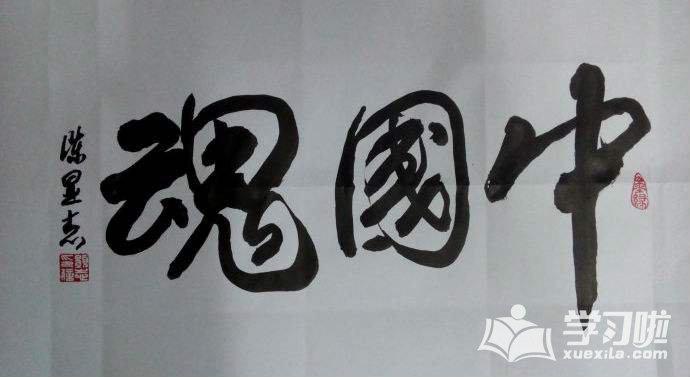 中國魂
学习啦
xuexila.com